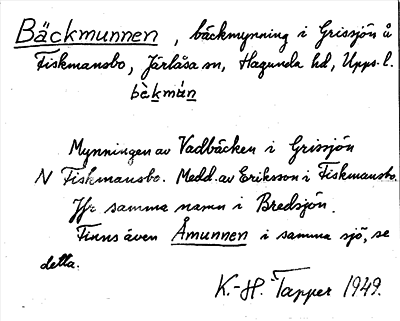 Bäckmunnen, bäckmynning i Grissjön å
Fiskmansbo, Järlåsa sn, Hagunda hd, Upps. l.
bèkmún
Mynningen av Vadbäcken i Grissjön
N Fiskmansbo. Medd. av Eriksson i Fiskmansbo.
Jfr samma namn i Bredsjön.
Finns även Åmunnen i samma sjö, se
detta.
K.-H. Tapper 1949.